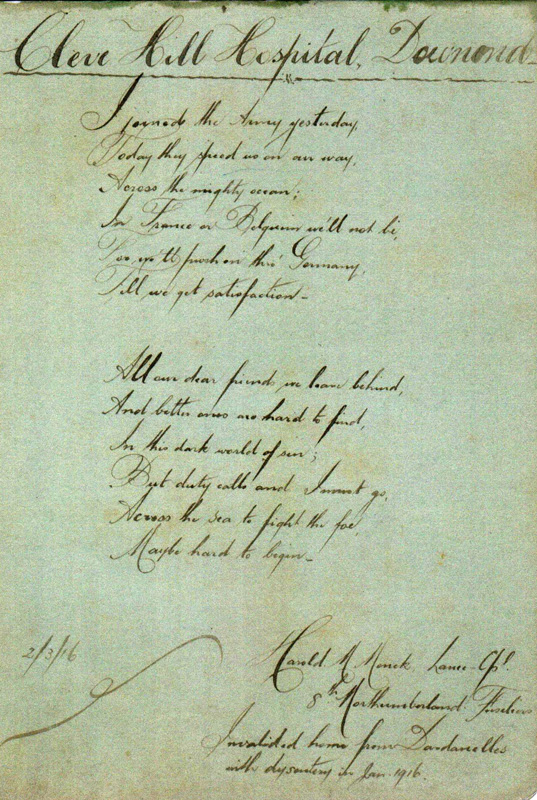 Cleve Hill Hospital, Downend
I joined the Army yesterday,
Today they speed us on our way,
Across the mighty ocean;
In France or Belgium we'll not be,
For we'll push on thro' Germany,
Till we get satisfaction -
All our dear friends we leave behind,
And better ones are hard to find,
In this dark world of sin;
But duty calls and I must go,
Across the sea to fight the foe,
Maybe hard to begin -
2/3/16
Harold M Monck. Lance-Cpl.
8th Northumberland Fusiliers
Invalided home from Dardanelles
with dysentery in Jan. 1916.